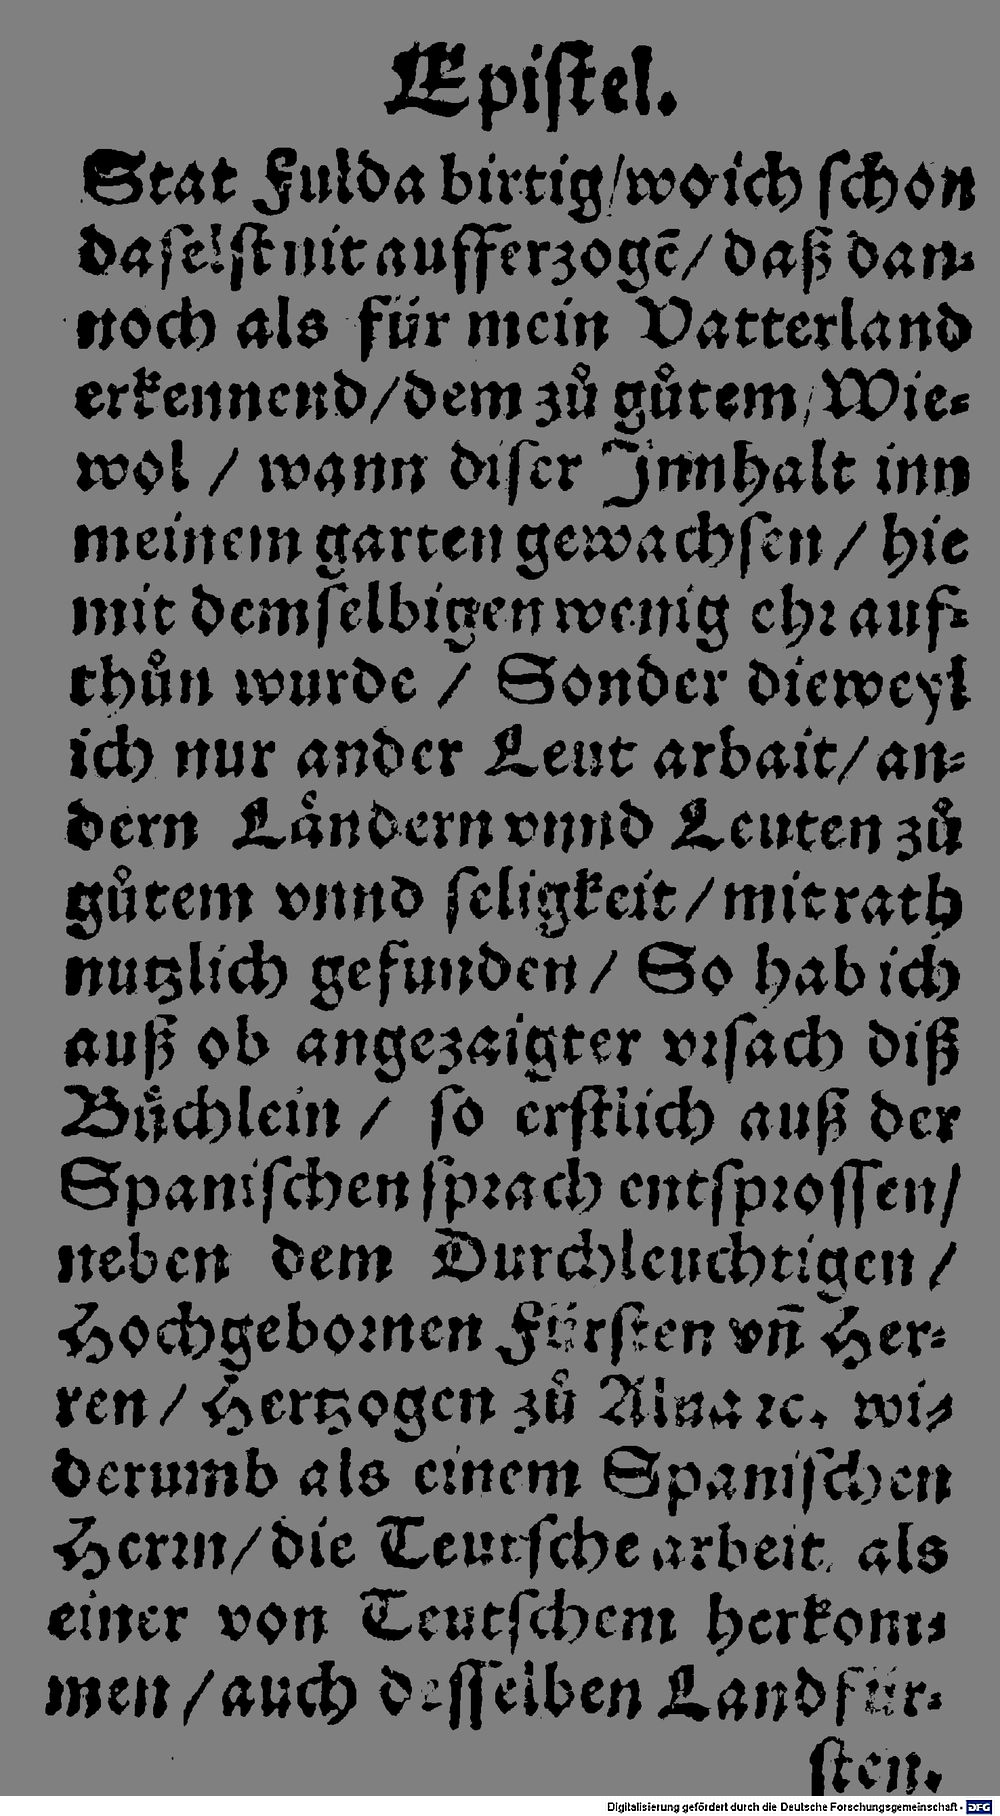 Epiſtel.
Stat Fulda birtig/wo ich ſchon
daſelſt nit aufferzogē/ daß dan-
noch als für mein Vatterland
erkennend/dem zů gůtem/Wie-
wol / wann diſer Innhalt inn
meinem garten gewachſen / hie
mit demſelbigen wenig ehꝛ auf-
thůn wurde / Sonder dieweyl
ich nur ander Leut arbait/an-
dern Laͤndern vnnd Leuten zů
gůtem vnnd ſeligkeit/mit rath
nutzlich gefunden/ So hab ich
auß ob angezaigter vꝛſach diß
Buͤchlein / ſo erſtlich auß der
Spaniſchen ſpꝛach entſpꝛoſſen/
neben dem Durchleuchtigen/
Hochgeboꝛnen Fürſten vn̄ Her-
ren/ Hertzogen zů Alua ꝛc. wi-
derumb als einem Spaniſchen
Herꝛn/die Teutſche arbeit, als
einer von Teutſchem herkom-
men/auch desſelben Landfür-
ſten.
Digitalisierung gefördert durch die Deutsche Forschungsgemeinschaft - DFG